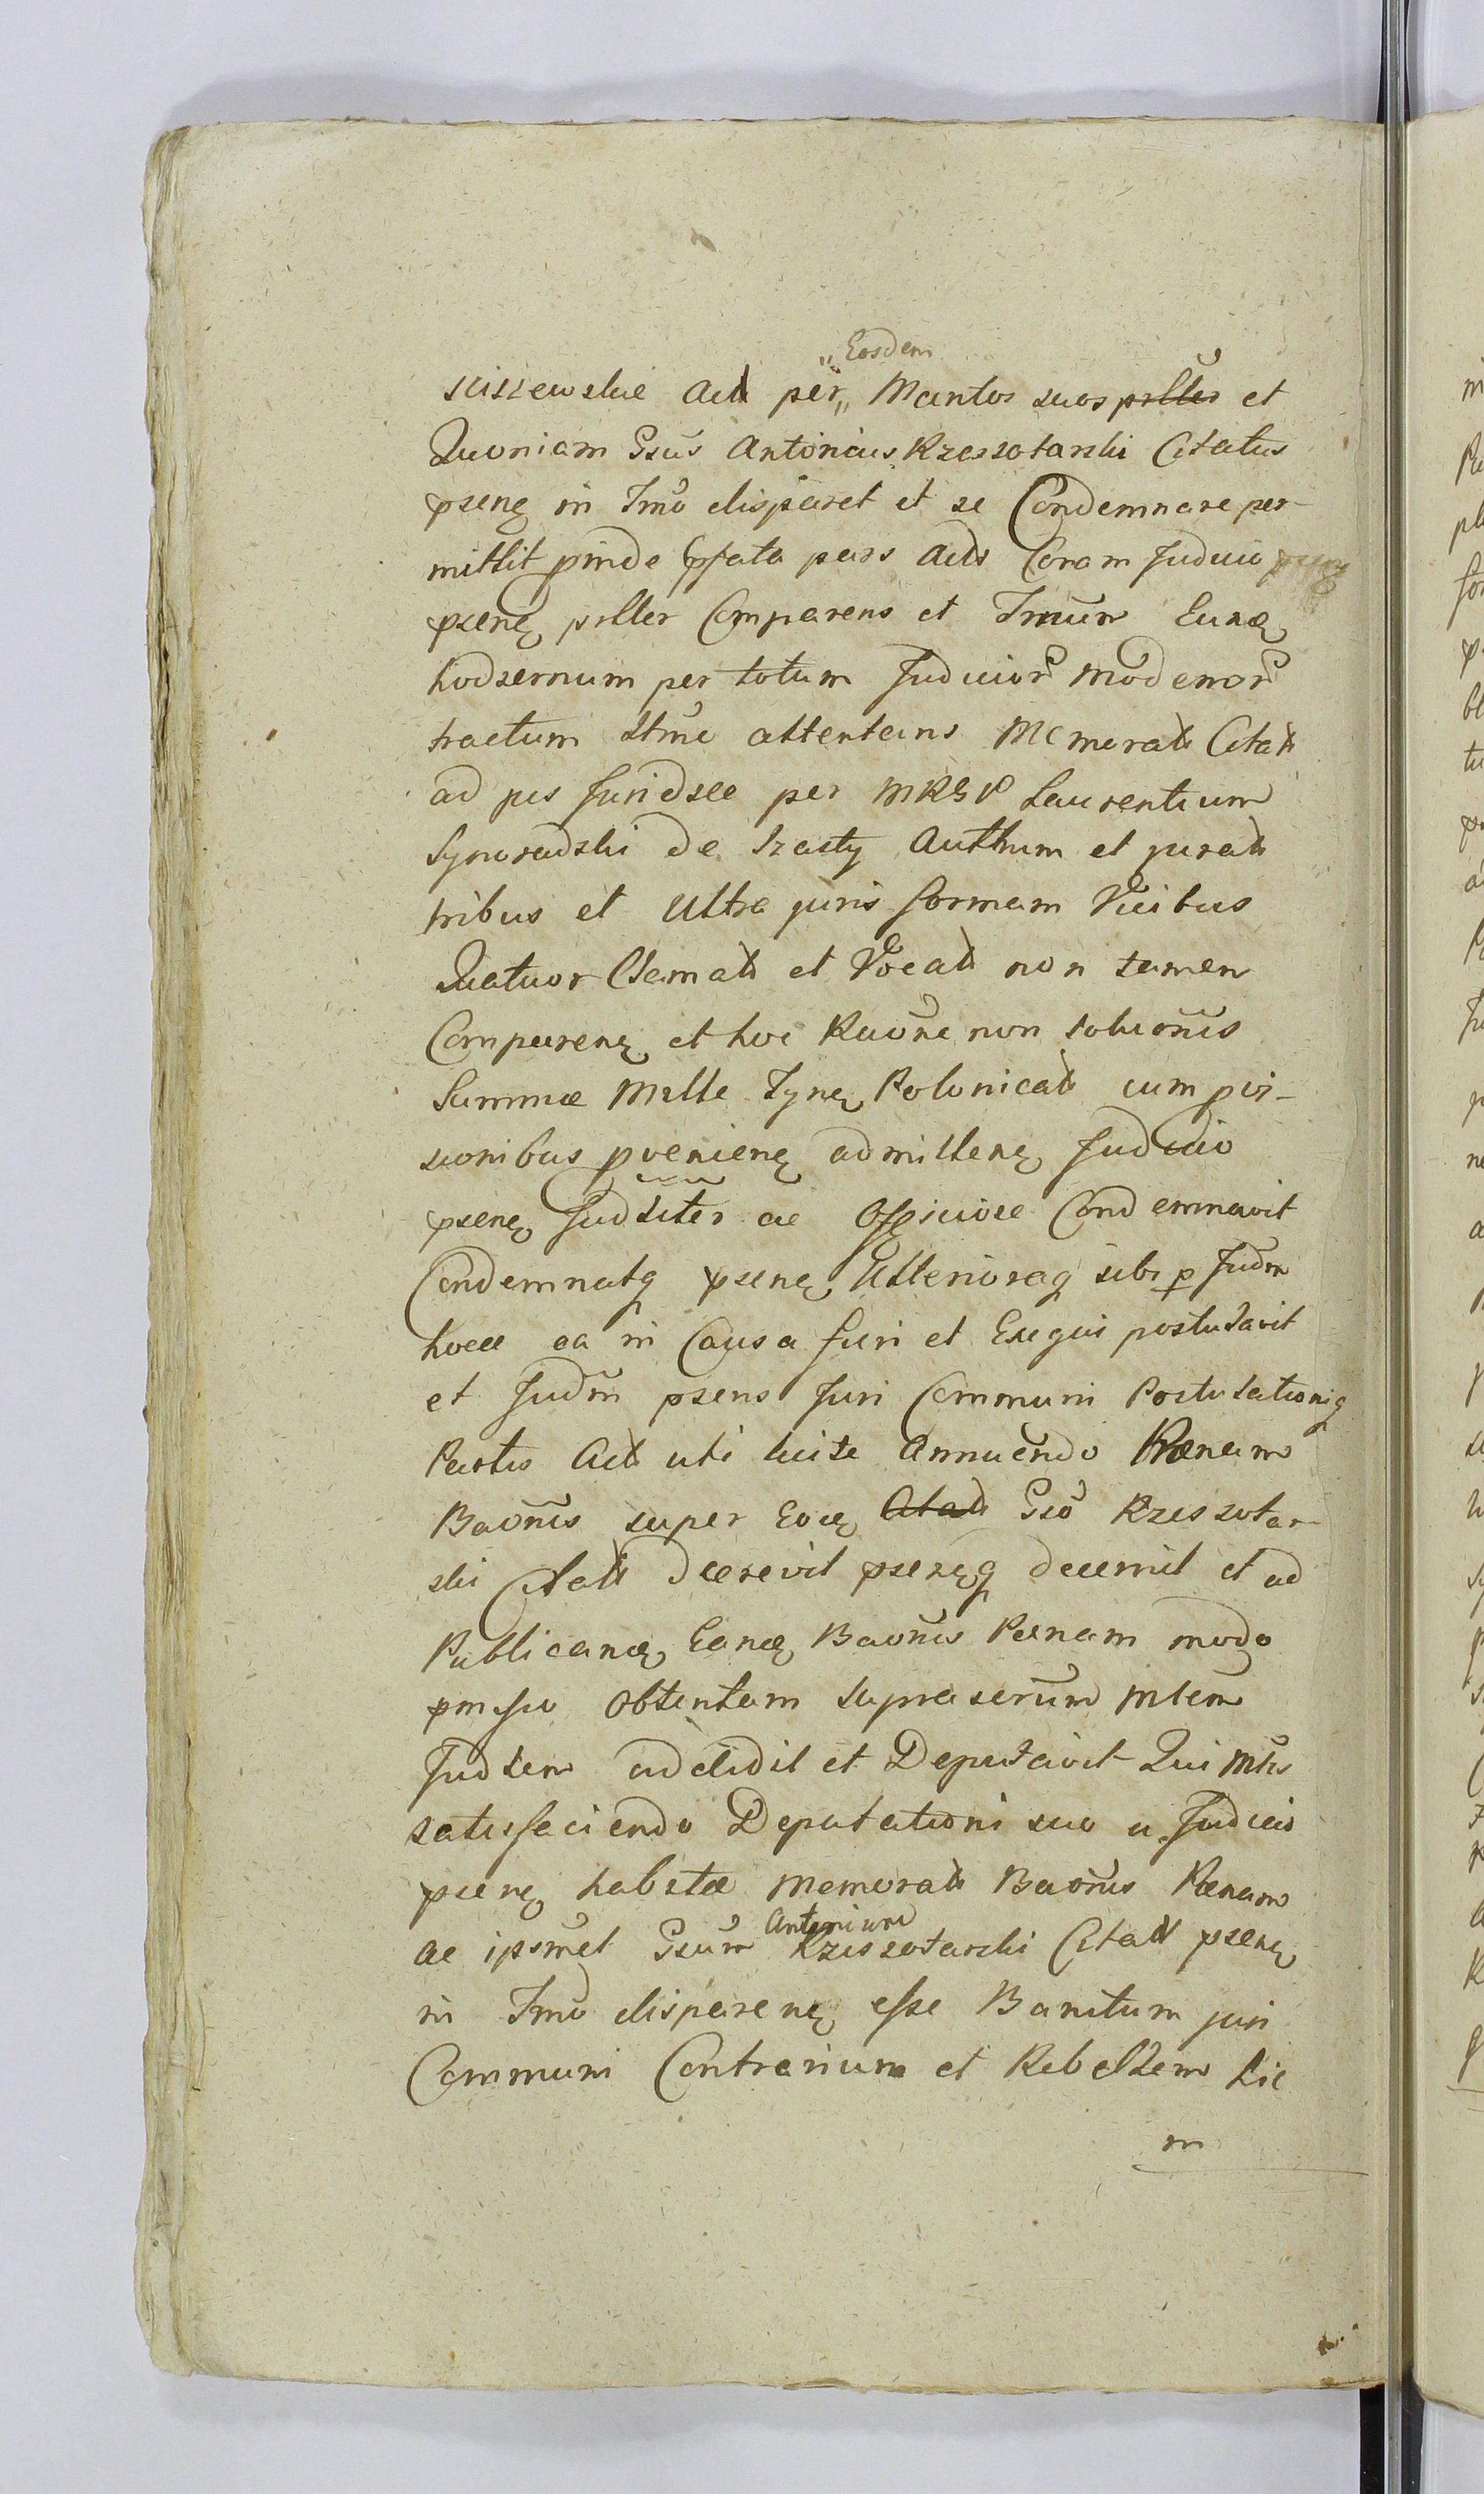 Eosdem
sciszewskie Act per Mantos suos prlter et
Quoniam Gsus Antonius Krzessotarski Citatus
psenę in Tmo disparet et se Condemnare per-
mittit pinde Psata pars Acts Coram Judicio
psenę prlter Comparens et Tmum Eunę
hodiernum per totum Judicior Modernor
tractum ltme attentans Memorati Citati
ad jus Juridice per MRGP Laurentium
de Szasty Authum et jurati
tribus et Ultra juris formam Vicibus
Quatuor Clamati et Vocati non tamen
Comparenę et hoc Raone non solutionis
Summae Mille Tynę Polonicati cum pvi-
sionibus pvenienę admittenę Judicio
psenę Judliter ac Officiose Condemnavit
Condemnatq psenę Ulterioraq sibi p Judm
hocce ea in Causa fieri et Exequi postulavit
et Judm psens Juri Communi Postulationiq
Partis Act uti licite Annuendo Paenam
Baonis super Eocę Citati Gso Krzessotar-
ski Citati Decrevit psensq decernit et ad
Publicanę Eanę Baonis Paenam modo
pmisso Obtentam supraserum Mlem
Judlem addidit et Deputavit Qui Mlis
satisfaciendo Deputationi suo a Judicio
psenę habitae Memorati Baonis Paenam
Antonium
ac ipsmet Gsum Krzessotarski Citati psenę
in Tmo disparenę esse Banitum juri
Communi Contrarium et Rebellem hic
in